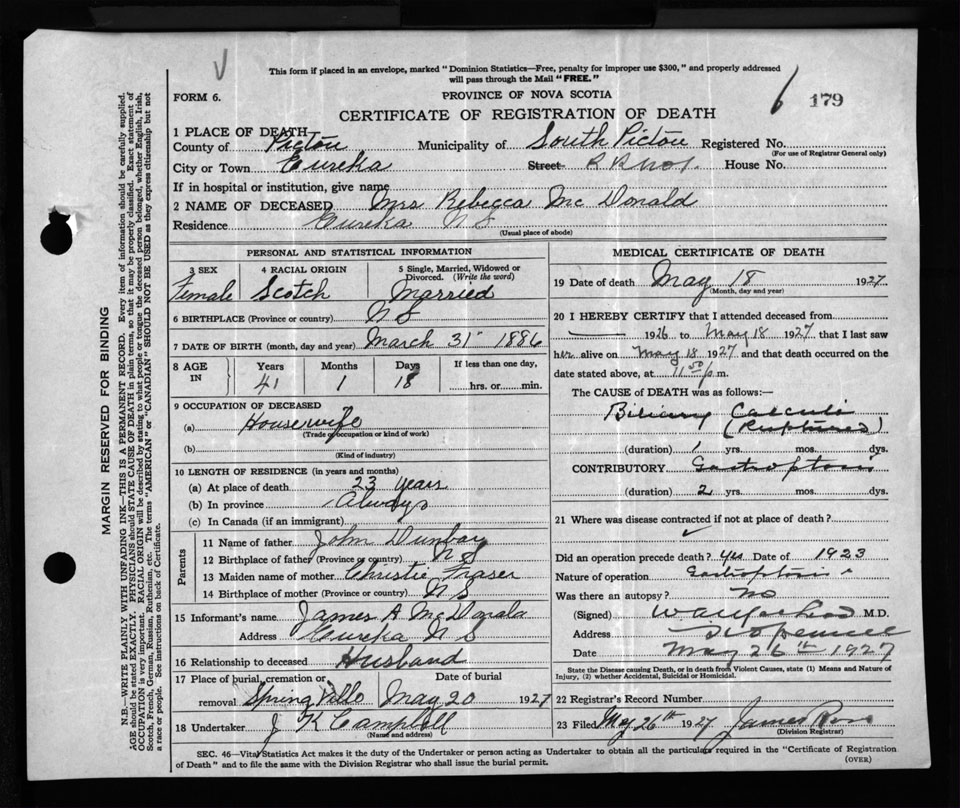 V
This form if placed in an envelope, marked "Dominion Statistics—Free, penalty for improper use $300," and properly addressed
will pass through the Mail "FREE."
FORM 6.
PROVINCE OF NOVA SCOTIA
6 179
CERTIFICATE OF REGISTRATION OF DEATH
1 PLACE OF DEATH
County of Pictou Municipality of South Pictou Registered No.
(For use of Registrar General only)
City or Town Eureka Street R R No 1. House No.
If in hospital or institution, give name
2 NAME OF DECEASED Mrs Rebecca Mc Donald
Residence Eureka N S
(Usual place of abode)
PERSONAL AND STATISTICAL INFORMATION
3 SEX Female
4 RACIAL ORIGIN Scotch
5 Single, Married, Widowed or Divorced. (Write the word) Married
6 BIRTHPLACE (Province or country) N S
7 DATE OF BIRTH (month, day and year) March 31st 1886
8 AGE IN
Years Months Days If less than one day,
41 1 18 hrs. or min.
9 OCCUPATION OF DECEASED
(a) Housewife
(Trade occupation or kind of work)
(b)
(Kind of industry)
10 LENGTH OF RESIDENCE (in years and months)
(a) At place of death 23 years
(b) In province Always
(c) In Canada (if an immigrant)
Parents
11 Name of father John Dunbar
12 Birthplace of father (Province or country) N S
13 Maiden name of mother Christie Fraser
14 Birthplace of mother (Province or country) N S
15 Informant's name James A McDonald
Address Eureka N S
16 Relationship to deceased Husband
17 Place of burial, cremation or removal Spring Ville
Date of burial May 20 1927
18 Undertaker J K Campbell
(Name and address)
MEDICAL CERTIFICATE OF DEATH
19 Date of death May 18 1927
(Month, day and year)
20 I HEREBY CERTIFY that I attended deceased from
1926 to May 18 1927 that I last saw
her alive on May 18 1927 and that death occurred on
date stated above, at 11 50 p m.
The CAUSE of DEATH was as follows:—
Biliary Calculi
(Ruptured)
(duration) 1 yrs. mos. dys.
CONTRIBUTORY Gastroptosis
(duration) 2 yrs. mos. dys.
21 Where was disease contracted if not at place of death?
Did an operation precede death? yes Date of 1923
Nature of operation Gastroptosis
Was there an autopsy? No
(Signed) M.D.
Address
Date May 26th 1927
State the Disease causing Death, or in death from Violent Causes, state (1) Means and Nature of
Injury, (2) whether Accidental, Suicidal or Homicidal.
22 Registrar's Record Number
23 Filed May 26th 1927 James Ross
(Division Registrar)
SEC. 46—Vital Statistics Act makes it the duty of the Undertaker or person acting as Undertaker to obtain all the particulars required in the "Certificate of Registration
of Death" and to file the same with the Division Registrar who shall issue the burial permit.
(OVER)
MARGIN RESERVED FOR BINDING
N.B.—WRITE PLAINLY WITH UNFADING INK—THIS IS A PERMANENT RECORD. Every item of information should be carefully supplied.
AGE should be stated EXACTLY. PHYSICIANS should STATE CAUSE OF DEATH in plain terms, so that it may be properly classified. Exact statement of
OCCUPATION is very important. RACIAL ORIGIN will be described by stating to what people or tongue the deceased person belonged, whether English, Irish,
Scotch, French, German, Russian, Ruthenian, etc. The terms "AMERICAN" or "CANADIAN" SHOULD NOT BE USED as they express citizenship but not
a race or people. See instructions on back of Certificate.